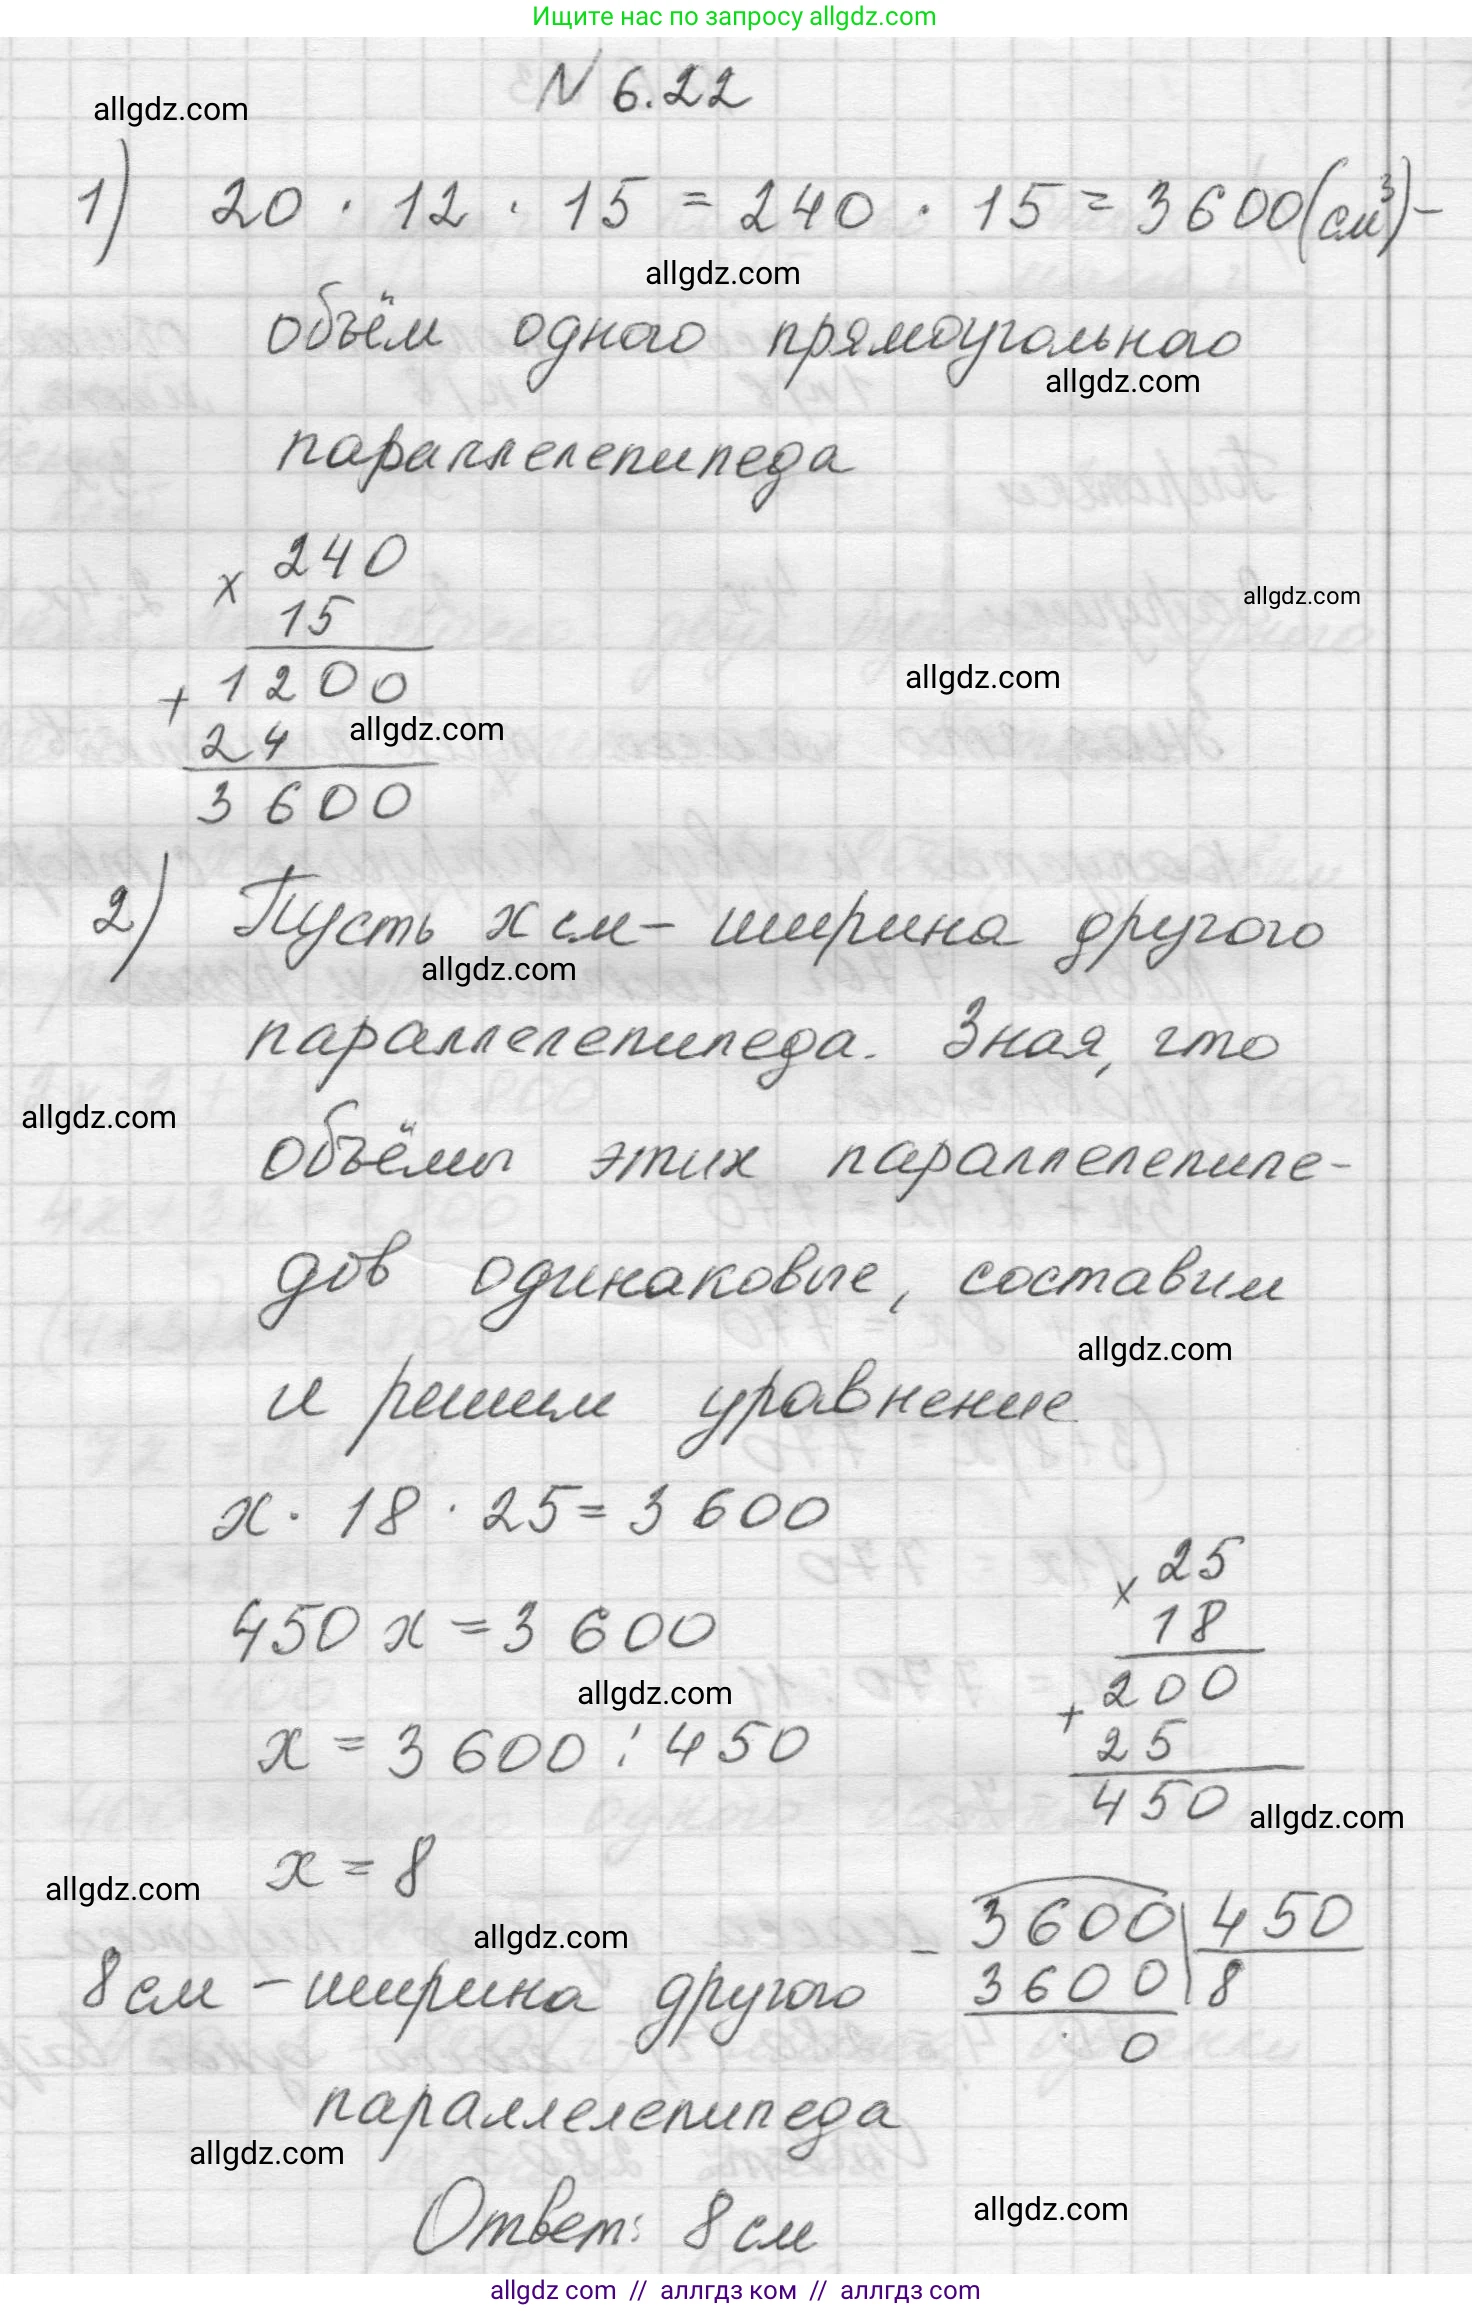 Ищите нас по запросу allgdz.com
N 6.22
allgdz.com
1) 20 · 12 · 15 = 240 · 15 = 3600 (см³) –
allgdz.com
объём одного прямоугольного
allgdz.com
параллелепипеда
× 240
15
allgdz.com
+ 1200
allgdz.com
24
allgdz.com
3600
2) Пусть x см – ширина другого
allgdz.com
параллелепипеда. Зная, что
allgdz.com
объёмы этих параллелепипе-
дов одинаковые, составим
allgdz.com
и решим уравнение
x · 18 · 25 = 3 600
× 25
18
450 x = 3 600
200
allgdz.com
+ 25
x = 3 600 : 450
450
allgdz.com
x = 8
allgdz.com
– 3600 | 450
allgdz.com
3600 | 8
8 см – ширина другого
0
параллелепипеда
allgdz.com
Ответ: 8 см
allgdz.com
allgdz com // аллгдз ком // аллгдз com